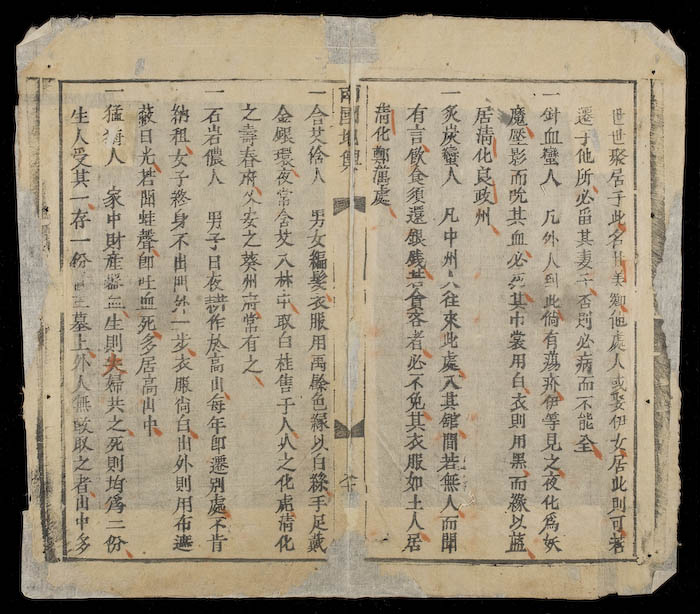 世世聚居于此名曰美他處人或娶伊女居此則可若
遷于他所必留其妻子否則必病而不能全
一針血蠻人 凡外人到此倘有疥伊等見之夜化爲妖
魔壓影而吮其血必死其巾裳用白衣則用黑而緣以藍
居清化良政州
一炙炭蠻人 凡中州人往來此處入其舘間若無人而聞
有言飲食須還銀錢若會客者必不免其衣服如土人居
清化鄭萬處
南國地輿
一含艾傖人 男女編髮衣服用禹餘色緣以白絲手足戴
金銀環夜常含艾入林中取白桂售于人人之化處清化
之壽春府乂安之葵州府常有之
一石岩儂人 男子日夜耕作於高山每年即遷別處不肯
納租女子終身不出門外一步衣服尚白出外則用布遮
蔽日光若聞蛙聲即吐血死多居高山中
一猛人 家中財產器皿生則夫婦共之死則均爲二份
生人受其一存一份墓上外人無敢取之者山中多